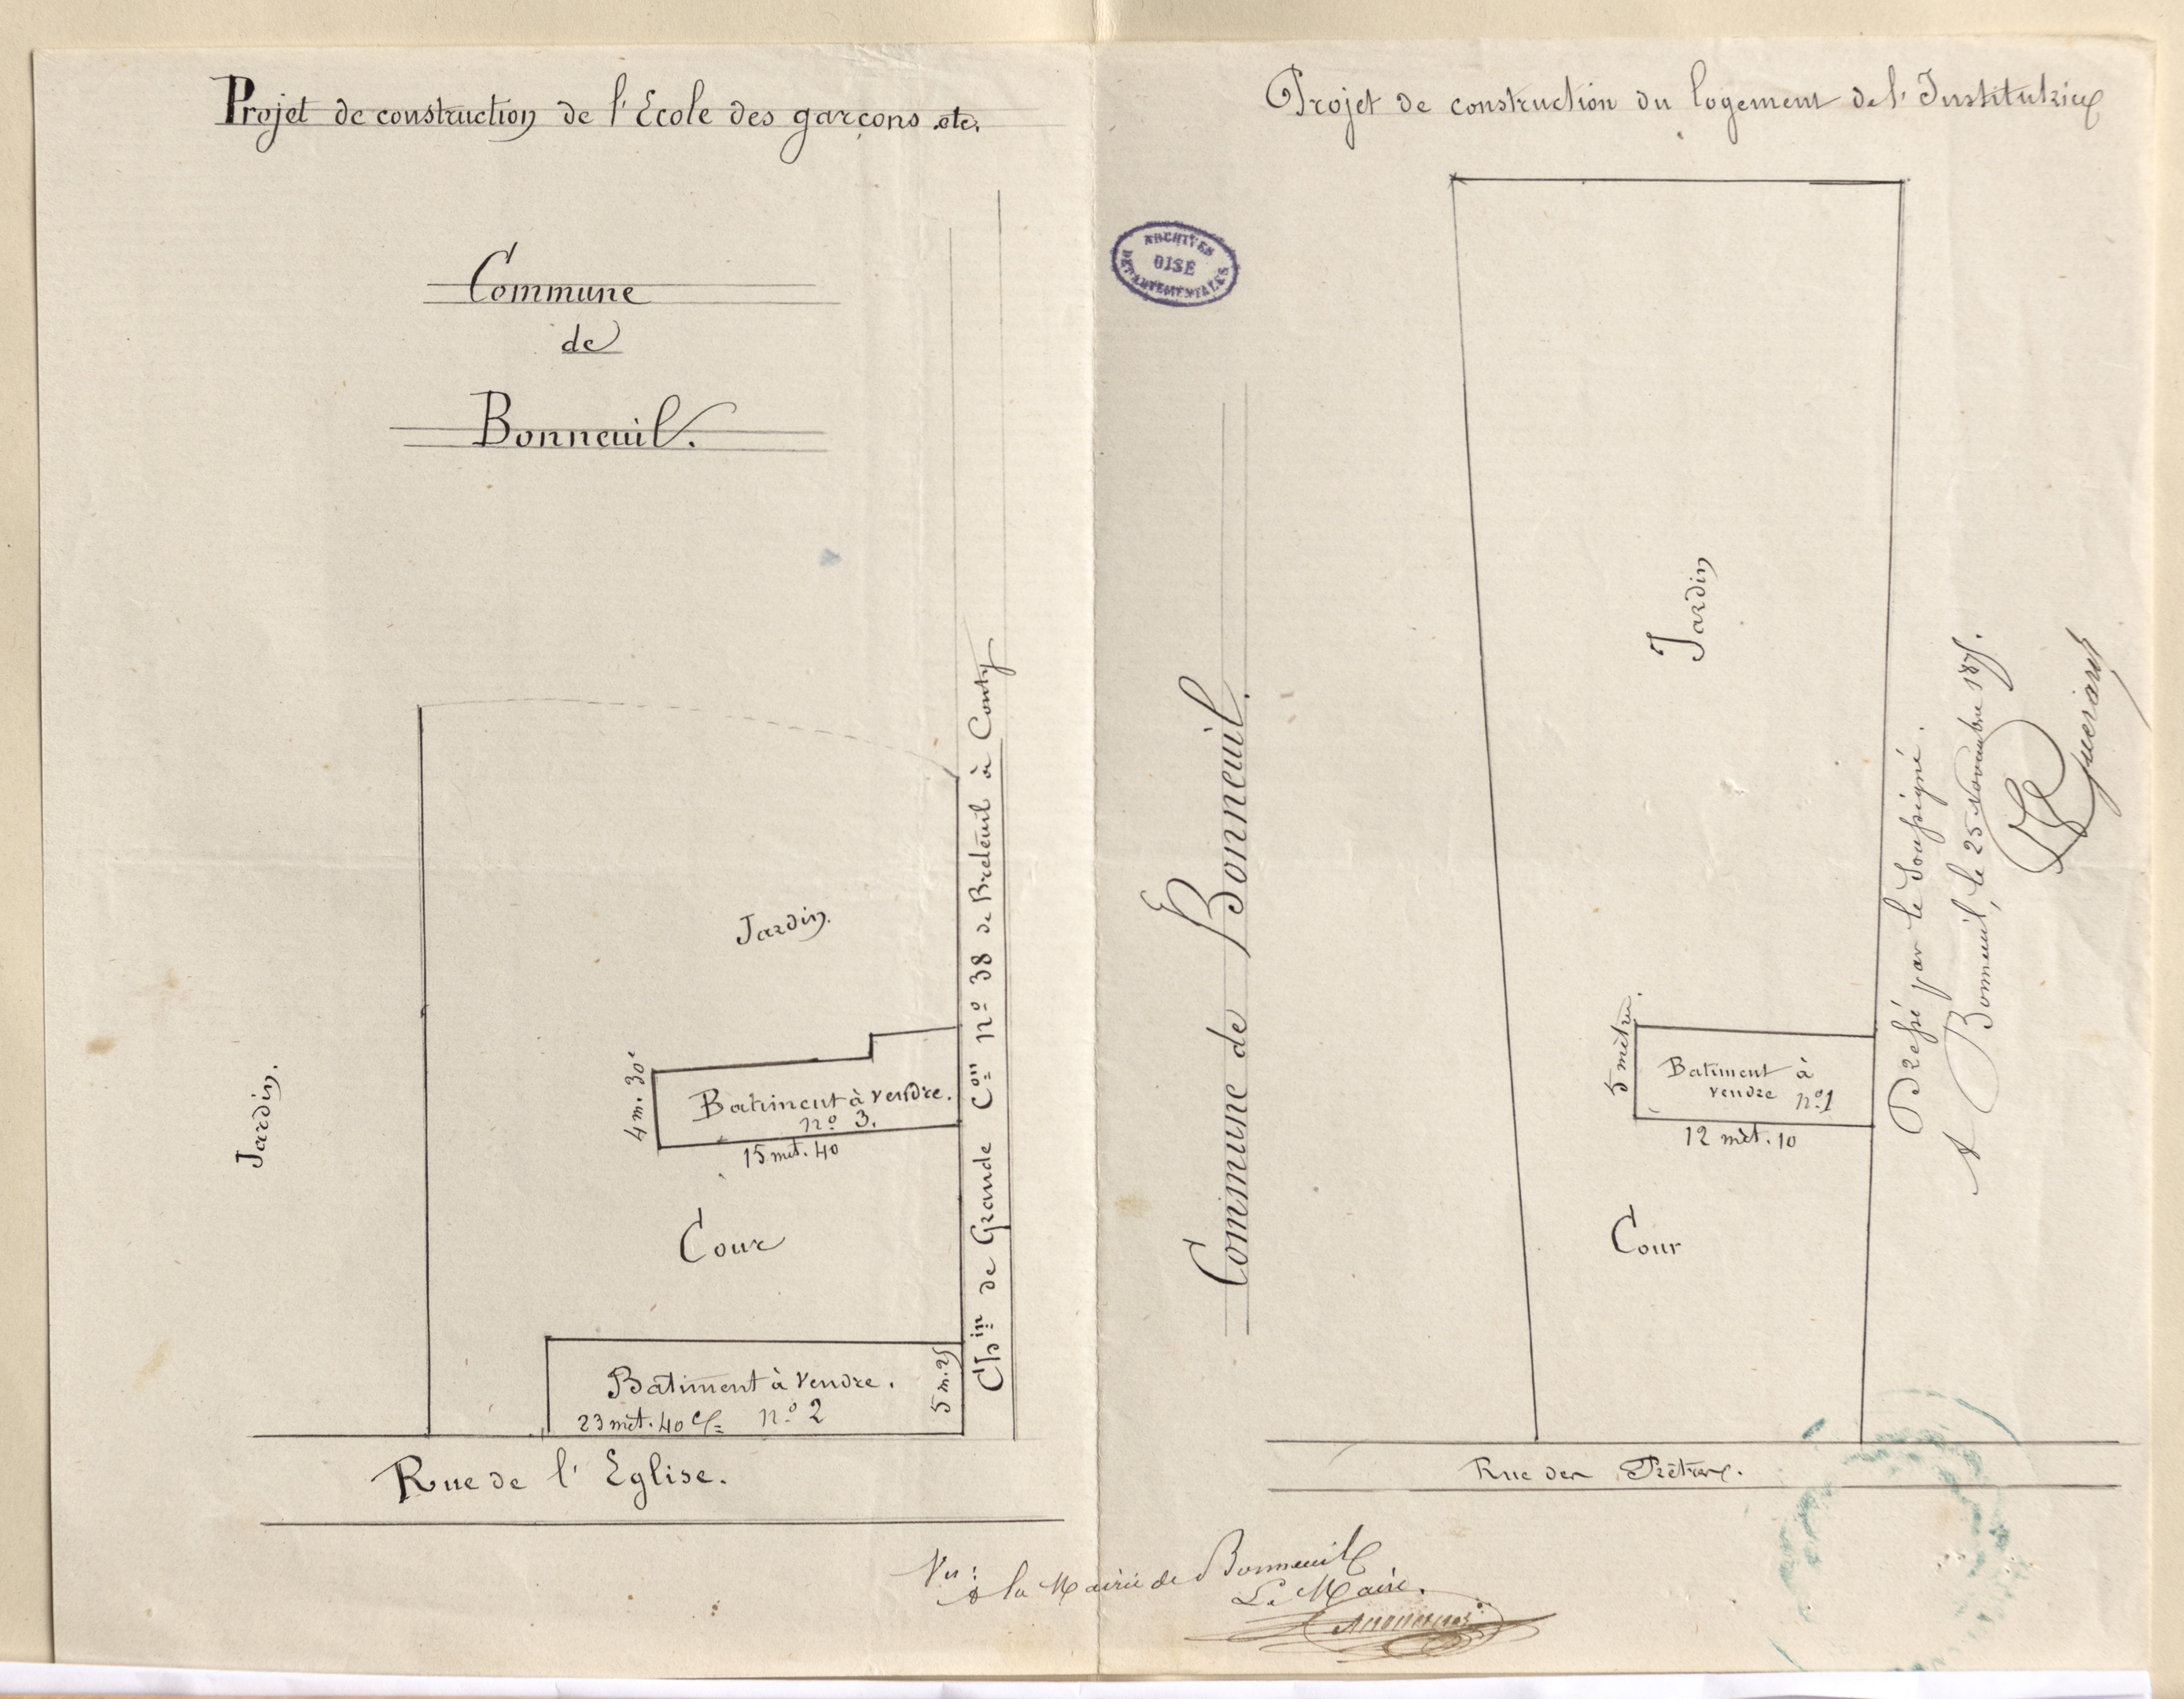 Projet de construction de l'Ecole des garçons etc.
Commune
de
Bonneuil.
Jardin.
Jardin.
4 m. 30c
Batiment à vendre.
nº 3.
15 mèt. 40
Cour
Batiment à vendre.
23 mèt. 40 c. nº 2
5 m. 25
Chin de Grande Con nº 38 de Breteuil à Conty
Rue de l'Eglise.
Projet de construction du logement de l'Institutrice
ARCHIVES
OISE
DÉPARTEMENTALES
Commune de Bonneuil.
Jardin
5 mètres.
Batiment à
vendre nº 1
12 mèt. 10
Cour
Dressé par le soussigné.
A Bonneuil, le 25 novembre 1875.
Rue des Prêtres.
Vu:
à la Mairie de Bonneuil
Le Maire.